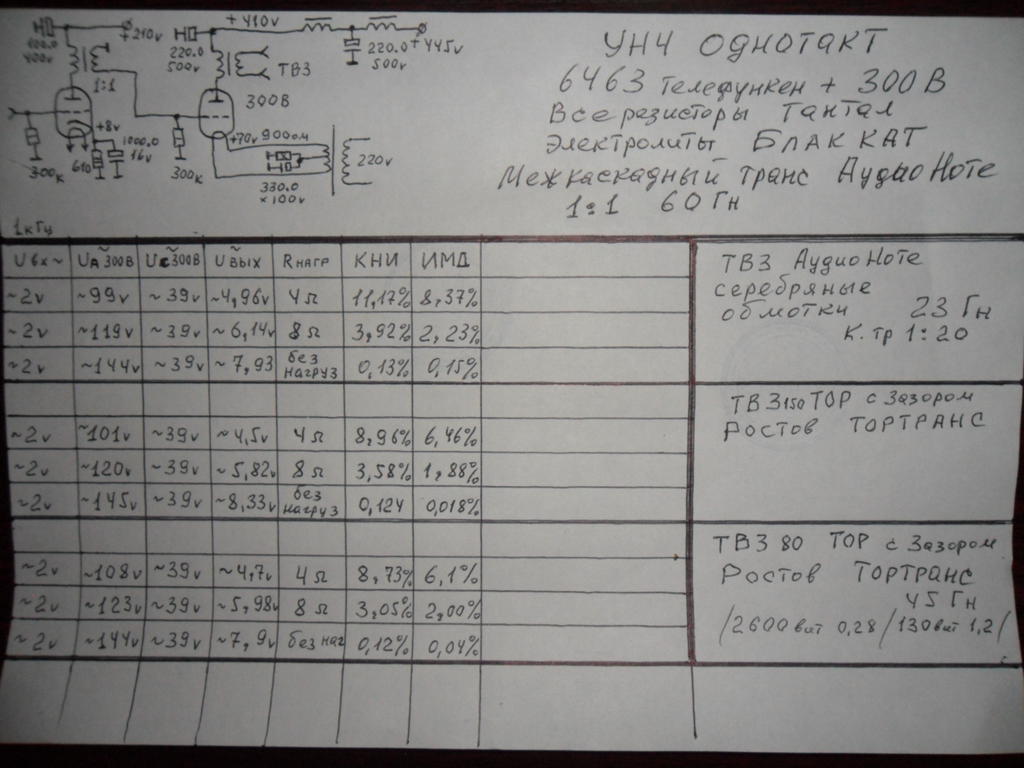 +410v
+210v
100.0
400v
220.0
500v
220.0
500v
+445v
ТВЗ
1:1
300В
+8v
+70v
900ом
1000.0
16v
610
300к
300к
330.0
×100v
220v
1кГц
УНЧ ОДНОТАКТ
6463 Телефункен + 300В
Все резисторы Тантал
Электролиты БЛАККАТ
Межкаскадный транс АудиоНоте
1:1 60Гн
Uвх~ UА300В Uс300В Uвых Rнагр КНИ ИМД
~2v ~99v ~39v ~4,96v 4Ω 11,17% 8,37%
~2v ~119v ~39v ~6,14v 8Ω 3,92% 2,23%
~2v ~144v ~39v ~7,93 без нагруз 0,13% 0,15%
ТВЗ АудиоНоте
серебряные
обмотки 23Гн
К.тр 1:20
~2v ~101v ~39v ~4,5v 4Ω 8,96% 6,46%
~2v ~120v ~39v ~5,82v 8Ω 3,58% 1,88%
~2v ~145v ~39v ~8,33v без нагруз 0,124 0,018%
ТВЗ150ТОР с Зазором
Ростов ТОРТРАНС
~2v ~108v ~39v ~4,7v 4Ω 8,73% 6,1%
~2v ~123v ~39v ~5,98v 8Ω 3,05% 2,00%
~2v ~144v ~39v ~7,9v без наг 0,12% 0,04%
ТВЗ 80 ТОР с Зазором
Ростов Тортранс
45Гн
/2600вит 0,28/130вит 1,2/